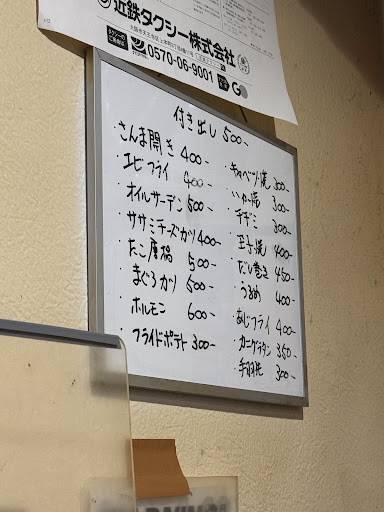 近鉄タクシー株式会社
0570-06-9001
付き出し 500-
さんま開き 400-
エビフライ 400-
オイルサーデン 500-
ササミチーズカツ 400-
たこ唐揚 500-
まぐろカツ 500-
ホルモン 600-
フライドポテト 300-
キャベツ焼 300-
いか焼 300-
チヂミ 300-
玉子焼 400-
だし巻き 450-
うるめ 400-
あじフライ 400-
カニグラタン 350-
手羽先 300-